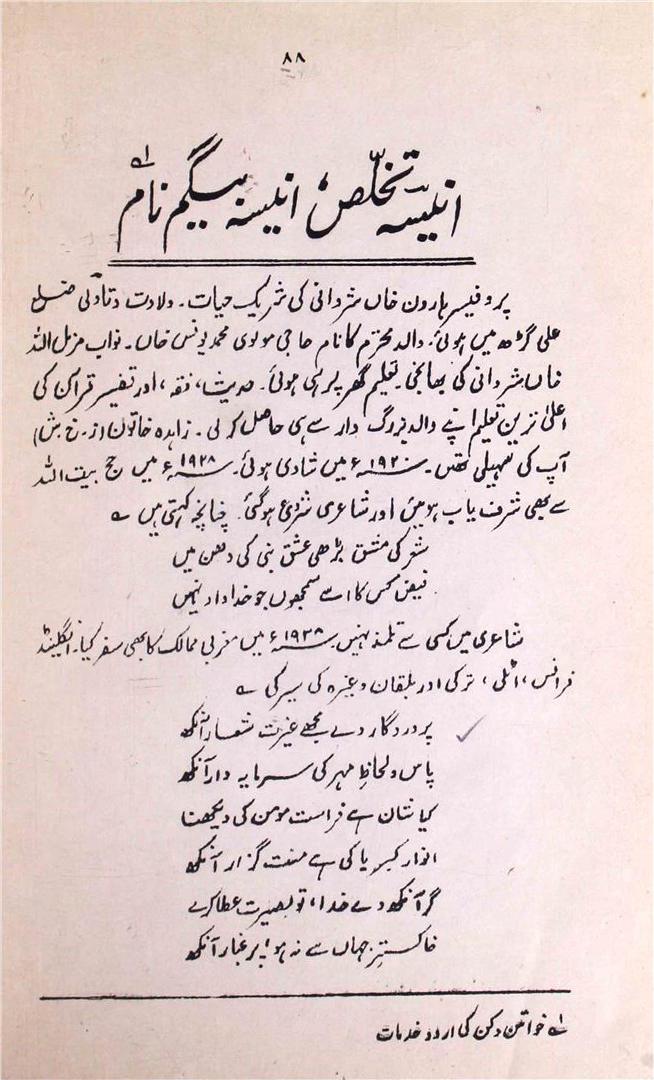 ۸۸
انیسہ تخلص، انیسہ بیگم نام ؎۱
پروفیسر ہارون خاں شروانی کی شریک حیات۔ ولادت دتاولی ضلع
علی گڑھ میں ہوئی۔ والد محترم کا نام حاجی مولوی محمد یونس خاں۔ نواب مزمل اللہ
خاں شروانی کی بھانجی۔ تعلیم گھر پر ہی ہوئی۔ حدیث، فقہ، اور تفسیر قرآن کی
اعلیٰ ترین تعلیم اپنے والد بزرگ وار سے ہی حاصل کر لی۔ زاہدہ خاتون (ز۔ خ۔ ش)
آپ کی سہیلی تھیں۔ ۱۹۲۰ء میں شادی ہوئی۔ ۱۹۲۸ء میں حج بیت اللہ
سے بھی شرف یاب ہوئیں اور شاعری شروع ہو گئی۔ چنانچہ کہتی ہیں ؎
شعر کی مشق بڑھی عشق بنی کی دھن میں
فیض کس کا اسے سمجھوں جو خداداد نہیں
شاعری میں کسی سے تلمذ نہیں۔ ۱۹۳۸ء میں مغربی ممالک کا بھی سفر کیا۔ انگلینڈ
فرانس، اٹلی، ترکی اور بلقان وغیرہ کی سیر کی ؎
پروردگار دے مجھے غیرت شعار آنکھ
پاس و لحاظِ مہر کی سرمایہ دار آنکھ
کیا شان ہے فراست مومن کی دیکھنا
انوار کبریا کی ہے منت گزار آنکھ
گر آنکھ دے خدا، تو بصیرت عطا کرے
خاکسترِ جہاں سے نہ ہو پر غبار آنکھ
؎۱ خواتین دکن کی اردو خدمات